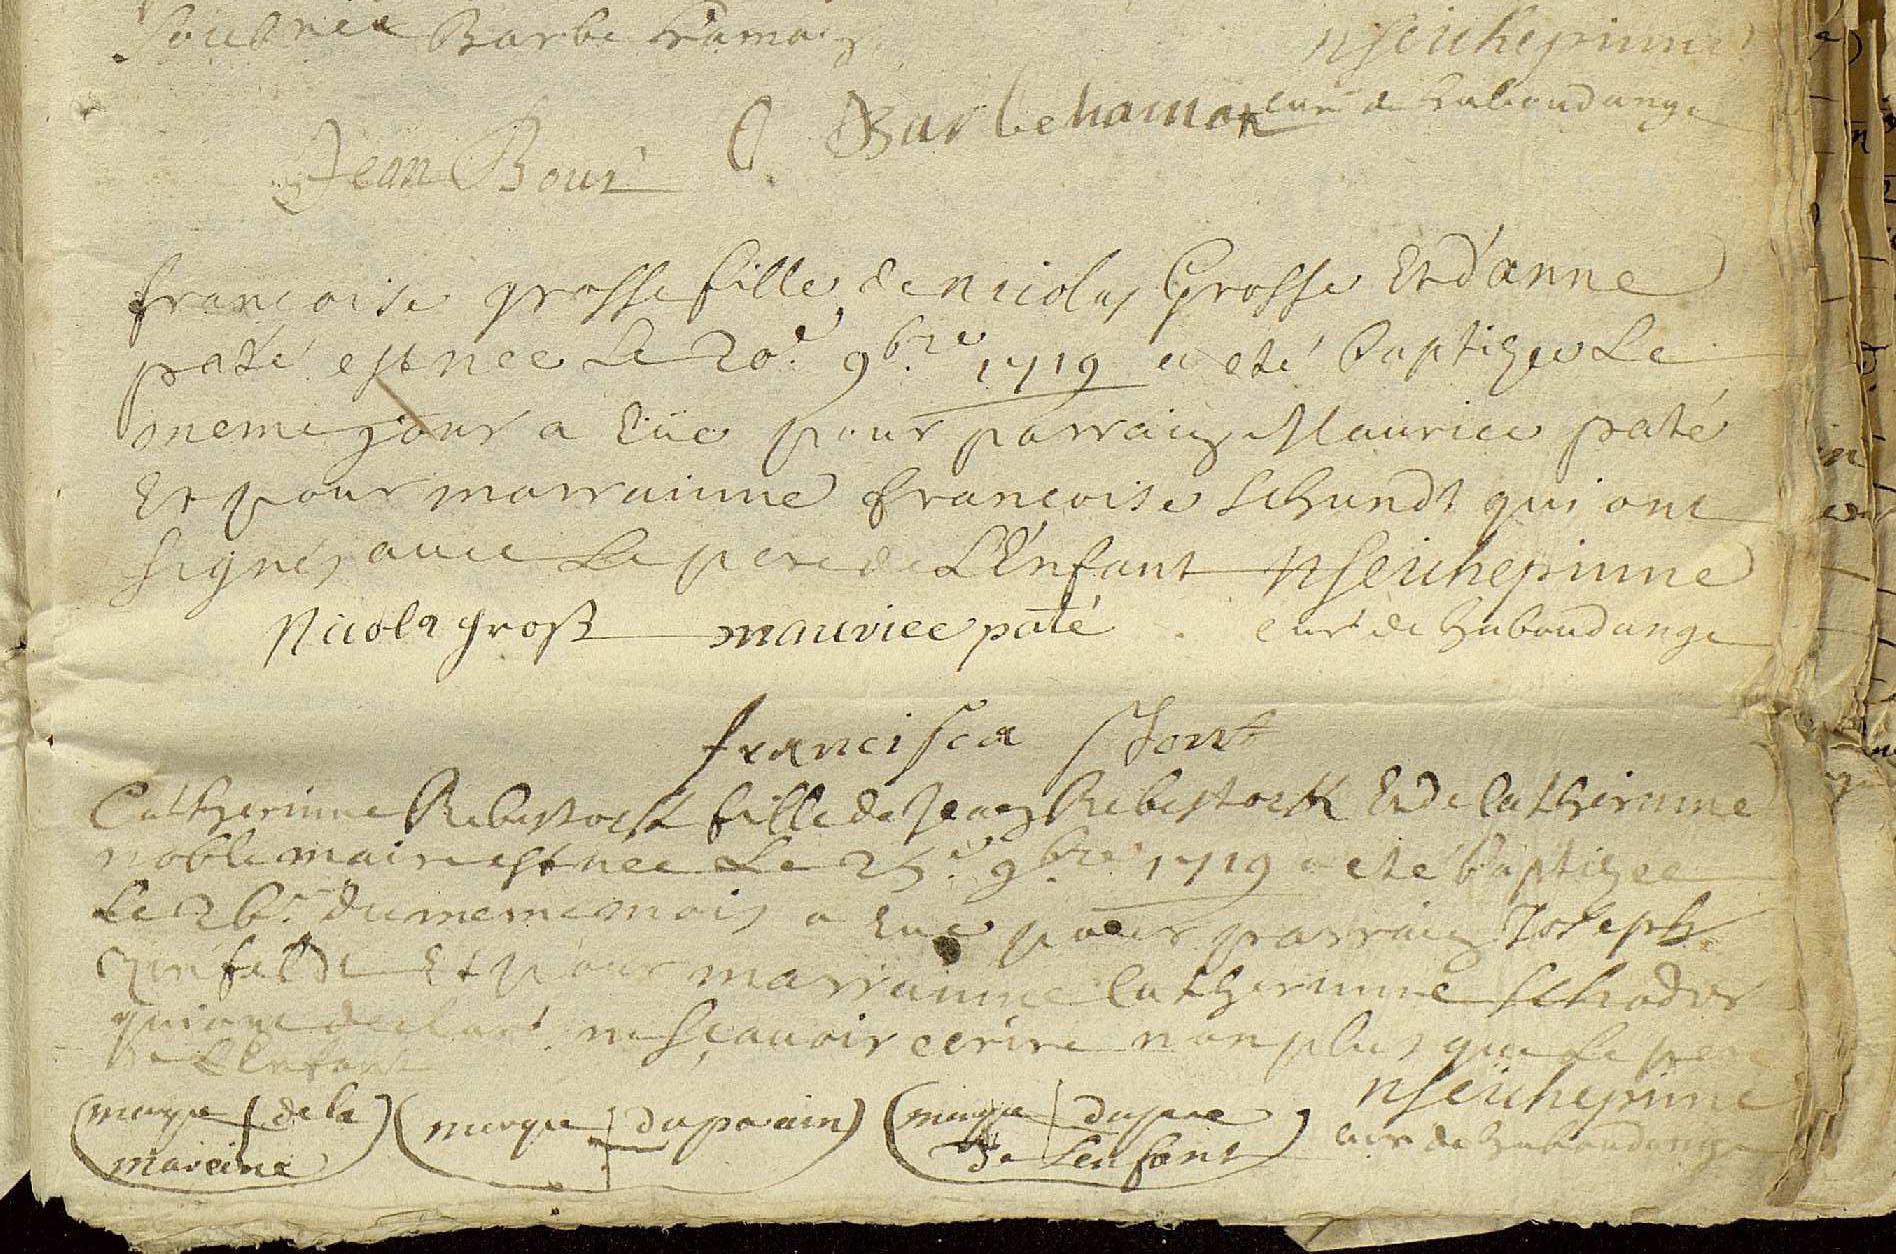 Barbe hamar
nseicheprinne
curé de haboudange
Barbe hamar
Jean Bour
françoise grosse fille de nicolas Grosse Et d'anne
paté est nee Le 20.e 9bre 1719 a eté baptizee Le
meme jour a Eue pour parrain Maurice paté
Et pour marrainne françoise schundt qui ont
signés avec Le pere de L'Enfant nseicheprinne
Nicola groß maurice paté curé de haboudange
francisca
Catherinne Rebestock fille de Jean Rebestock Et de Catherinne
noblemaire est nee Le 25.e 9bre 1719 a eté baptizee
Le 26.e du meme mois a Eue pour parrain Joseph
Et pour marrainne Catherinne schoder
qui ont declaré ne sçavoir ecrire non plus que Le pere
de L'Enfant
nseicheprinne
(marque de la
mareine) (marque du parain) (marque du pere
de Lenfant)
curé de haboudange